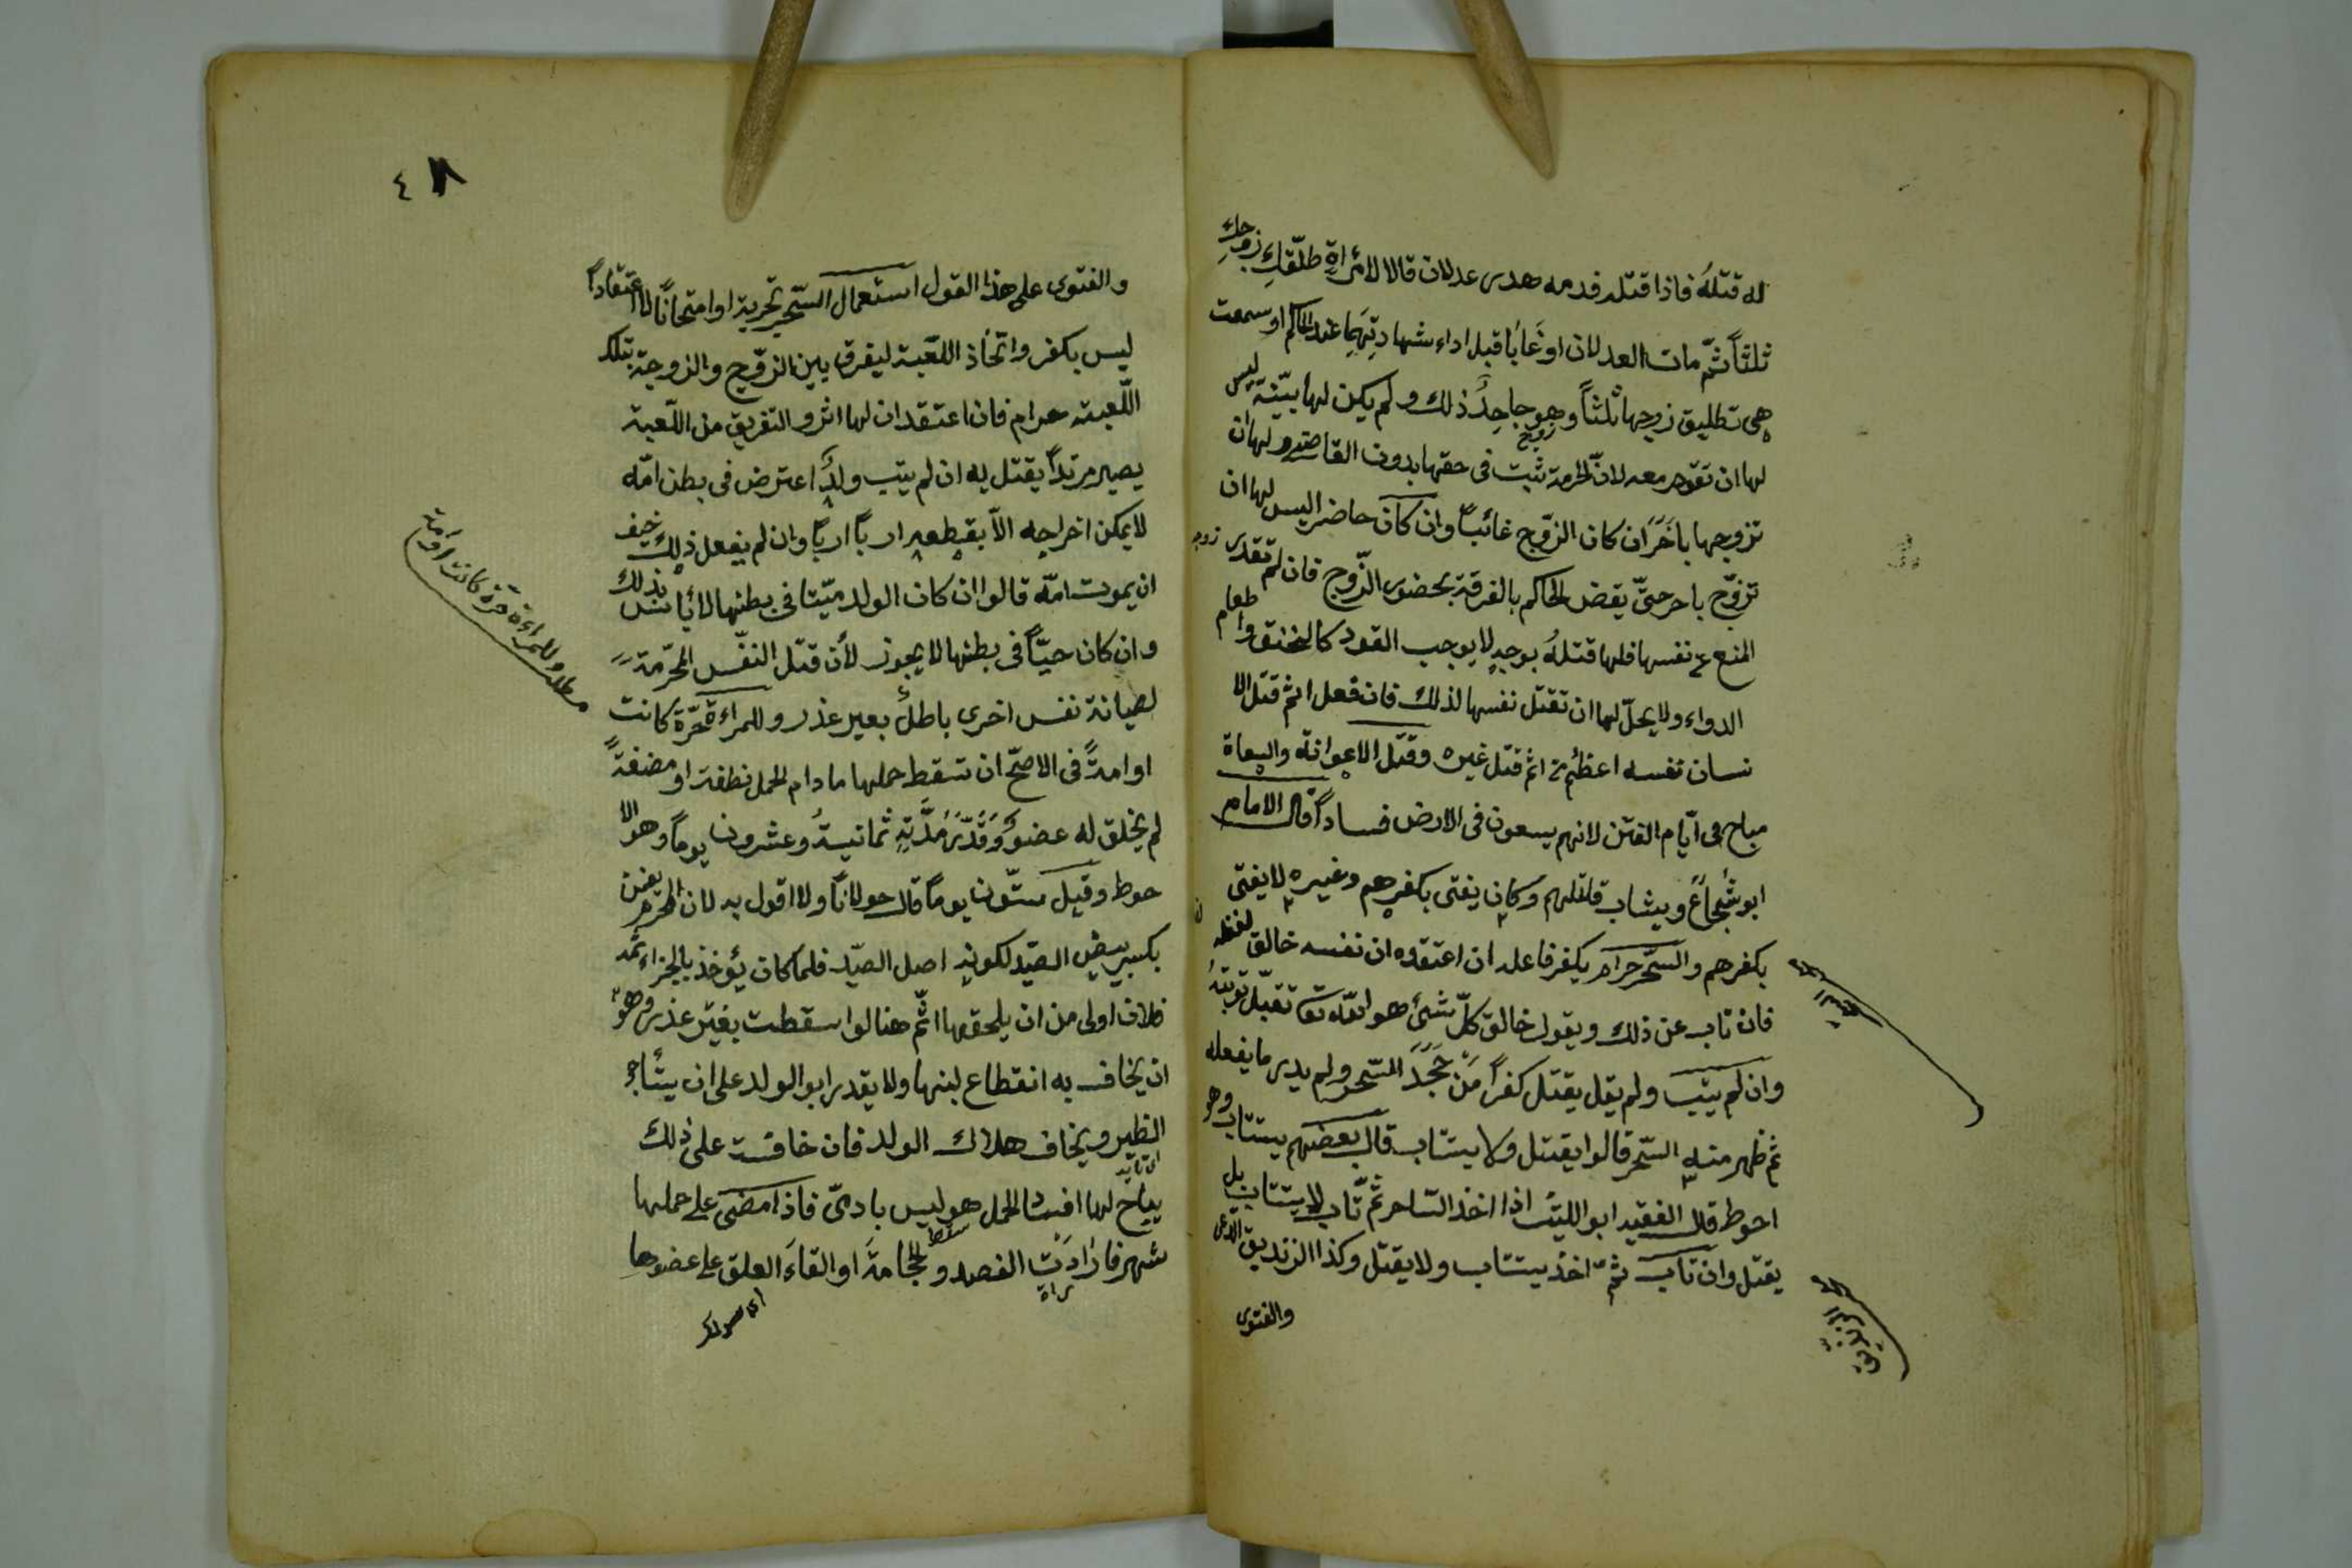 له قتلهُ فاذا قتله فدمه هدى عدلان قالا لامرأةٍ طلّقكِ زوجكِ
ثلثاً ثمّ مات العدلان او غَابَا قبل اداء شهادتِهِمَا عند الحاكم او سمعت
هى تطليق زوجها ثلثاً وهو جاحِدُ ذلك ولم يكن لها بيّنة ليس
لها ان تقوم معه لانّ الحرمة ثبت فى حقها بدون القاضى ولها ان
تزوجها باخَرَ ان كان الزّوج غائباً وان كان حاضر اليس لها ان
تزوّج باخر حتىّ يقض الحاكم بالفرقة بحضور الزّوج فان لم تقدر
المنع عن نفسها فلها قتلهُ بوجهٍ لا يوجب القود كالخنق واطعام
الدواء ولا يحلّ لها ان تقتل نفسها لذلك فان فعل اثم قتل الا
نسان نفسه اعظم من اثم قتل غيره وقتل الاعوانه والسعاة
مباح فى ايّام الفتن لانهم يسعون فى الارض فساداً قال الامام
ابو شُجاعَ ويثاب قاتلهم وكان يفتى بكفرهم وغيره لا يفتى
بكفرهم والسّحر حرام يكفر فاعله ان اعتقده ان نفسه خالق لفعله
فان تاب عن ذلك ويقول خالق كلّ شئ هو الله تعا تقبل توبتهُ
وان لم يتب ولم يقل يقتل كفراً مَنْ جَحَدَ السّحر ولم يدر ما يفعله
ثم ظهر منه السّحر قالوا يقتل ولا يستاب قال بعضهم يستتاب وهو
احوط قال الفقيه ابو الليث اذا اخذ الساحر ثمّ تاب لا يستتاب بل
يقتل وان تاب ثمّ اخذ يستتاب ولا يقتل وكذا الزنديق الداعى
والفتوى
٤٨
والفتوى على هذا القول استعمال السّحر تجربة او امتحاناً لا اعتقاداً
ليس بكفر واتخاذ اللعّبة ليفرق بين الزوّج والزوجة بتلك
اللّعبة حرام فان اعتقد ان لها اثر والتفريق من اللّعبة
يصير مرتداً يقتل به ان لم يتب ولدٌ اعترض فى بطن امّه
لا يمكن اخراجه الاّ بقطعه ارباً ارباً وان لم يفعل ذلك خيف
ان يموت امّه قالوا ان كان الولد ميّتا فى بطنها لا بأس بذلك
وان كان حيّاً فى بطنها لا يجوز لأن قتل النفّس المحرّمة
لصيانة نفس اخرى باطلٌ بغير عذر وللمراءة حرّة كانت
او امةً فى الاصحّ ان تسقط حملها مادام الحمل نطفة او مضغةً
لم يخلق له عضوٌ وَقُدّرَ مُدَّتِهِ ثمانيةُ وعشرون يوماً وهو الا
حوط وقيل ستّون يوماً قال مولانا ولا اقول به لان المحرم يضمن
بكسر بيض الصّيد لكونهِ اصل الصّيد فلما كان يؤخذ بالجزاء ثمه
فلان اولى من ان يلحقها اثم هنا لو اسقطت بغير عذر وهو
ان يخاف به انقطاع لبنها ولا يقدر ابو الولد على ان يستأجر
الظير ويخاف هلاك الولد فان خافت على ذلك
يباح لها افساد الحمل هو ليس بادمىّ فاذا مضى على حملها
شهر فارَادَتِ الفصد والحجامةَ او القاءَ العلق على عضوها
وللمراءة حرة كانت او امة